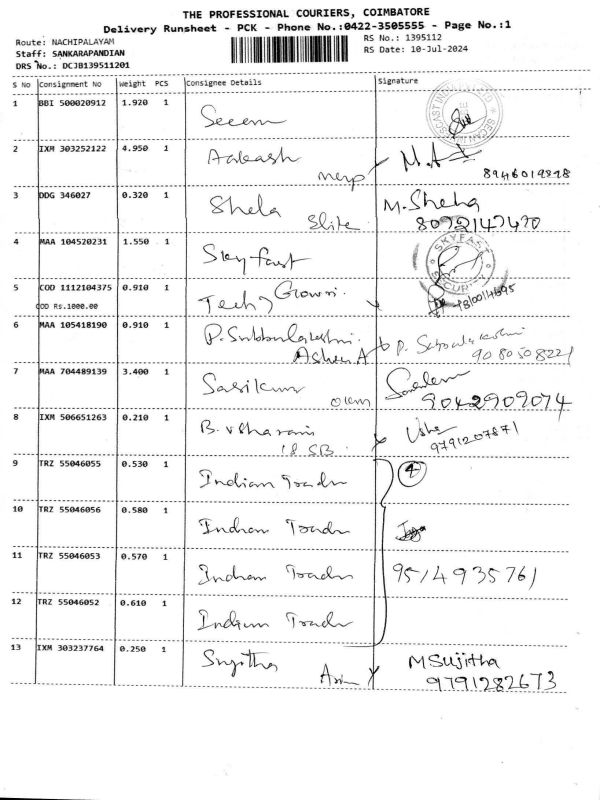 THE PROFESSIONAL COURIERS, COIMBATORE
Delivery Runsheet - PCK - Phone No.:0422-3505555 - Page No.:1
Route: NACHIPALAYAM RS No.: 1395112
Staff: SANKARAPANDIAN RS Date: 10-Jul-2024
DRS No.: DCJB139511201
S No Consignment No Weight PCS Consignee Details Signature
1 BBI 500020912 1.920 1
2 IXM 303252122 4.950 1 Aakash
8946019828
3 DDG 346027 0.320 1 Shela M. Shela
Slite 8072147470
4 MAA 104520231 1.550 1 Sky fast SKYFAST SECURITY
5 COD 1112104375 0.910 1 Tech
COD Rs.1000.00
6 MAA 105418190 0.910 1 P. Subbulakshmi
9080508221
7 MAA 704489139 3.400 1 Sasikumar
9042909074
8 IXM 506651263 0.210 1 Usha
18 SB 9791207871
9 TRZ 55046055 0.530 1 Indian Trader 4
10 TRZ 55046056 0.580 1 Indian Trader
11 TRZ 55046053 0.570 1 Indian Trader 9514935761
12 TRZ 55046052 0.610 1 Indian Trader
13 IXM 303237764 0.250 1 Sujitha M Sujitha
9791282673